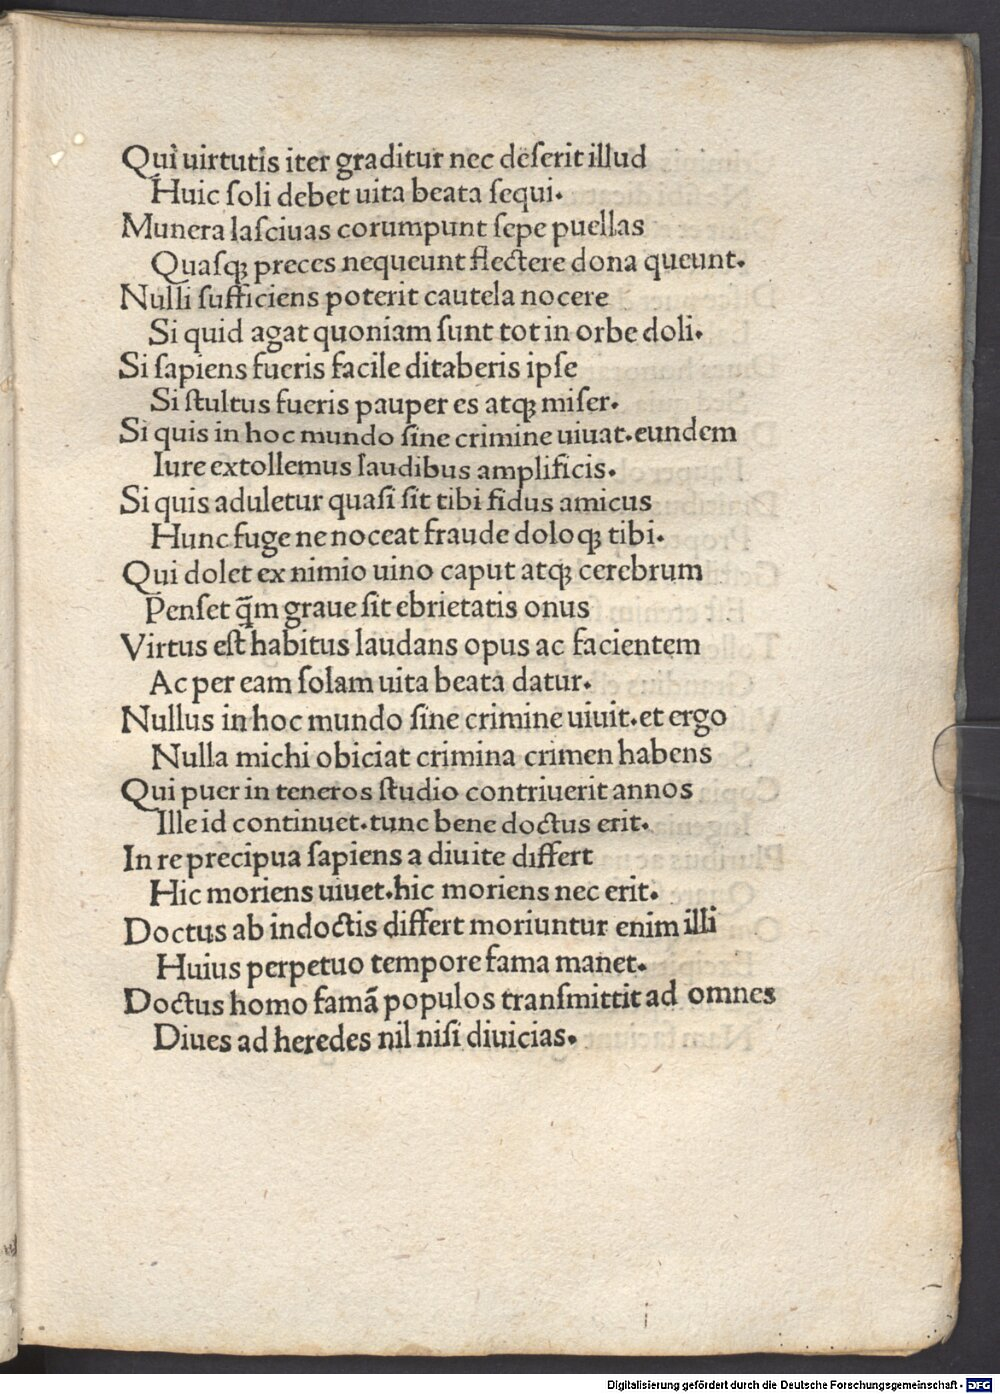 Qui uirtutis iter graditur nec deſerit illud
Huic ſoli debet uita beata ſequi.
Munera laſciuas corumpunt ſepe puellas
Quaſqꝫ preces nequeunt flectere dona queunt.
Nulli ſufficiens poterit cautela nocere
Si quid agat quoniam ſunt tot in orbe doli.
Si ſapiens fueris facile ditaberis ipſe
Si ſtultus fueris pauper es atqꝫ miſer.
Si quis in hoc mundo ſine crimine uiuat.eundem
Iure extollemus laudibus amplificis.
Si quis aduletur quaſi ſit tibi fidus amicus
Hunc fuge ne noceat fraude doloqꝫ tibi.
Qui dolet ex nimio uino caput atqꝫ cerebrum
Penſet q̃m graue ſit ebrietatis onus
Virtus eſt habitus laudans opus ac facientem
Ac per eam ſolam uita beata datur.
Nullus in hoc mundo ſine crimine uiuit.et ergo
Nulla michi obiciat crimina crimen habens
Qui puer in teneros ſtudio contriuerit annos
Ille id continuet.tunc bene doctus erit.
In re precipua ſapiens a diuite differt
Hic moriens uiuet.hic moriens nec erit.
Doctus ab indoctis differt moriuntur enim illi
Huius perpetuo tempore fama manet.
Doctus homo famã populos tranſmittit ad omnes
Diues ad heredes nil niſi diuicias.
Digitalisierung gefördert durch die Deutsche Forschungsgemeinschaft - DFG